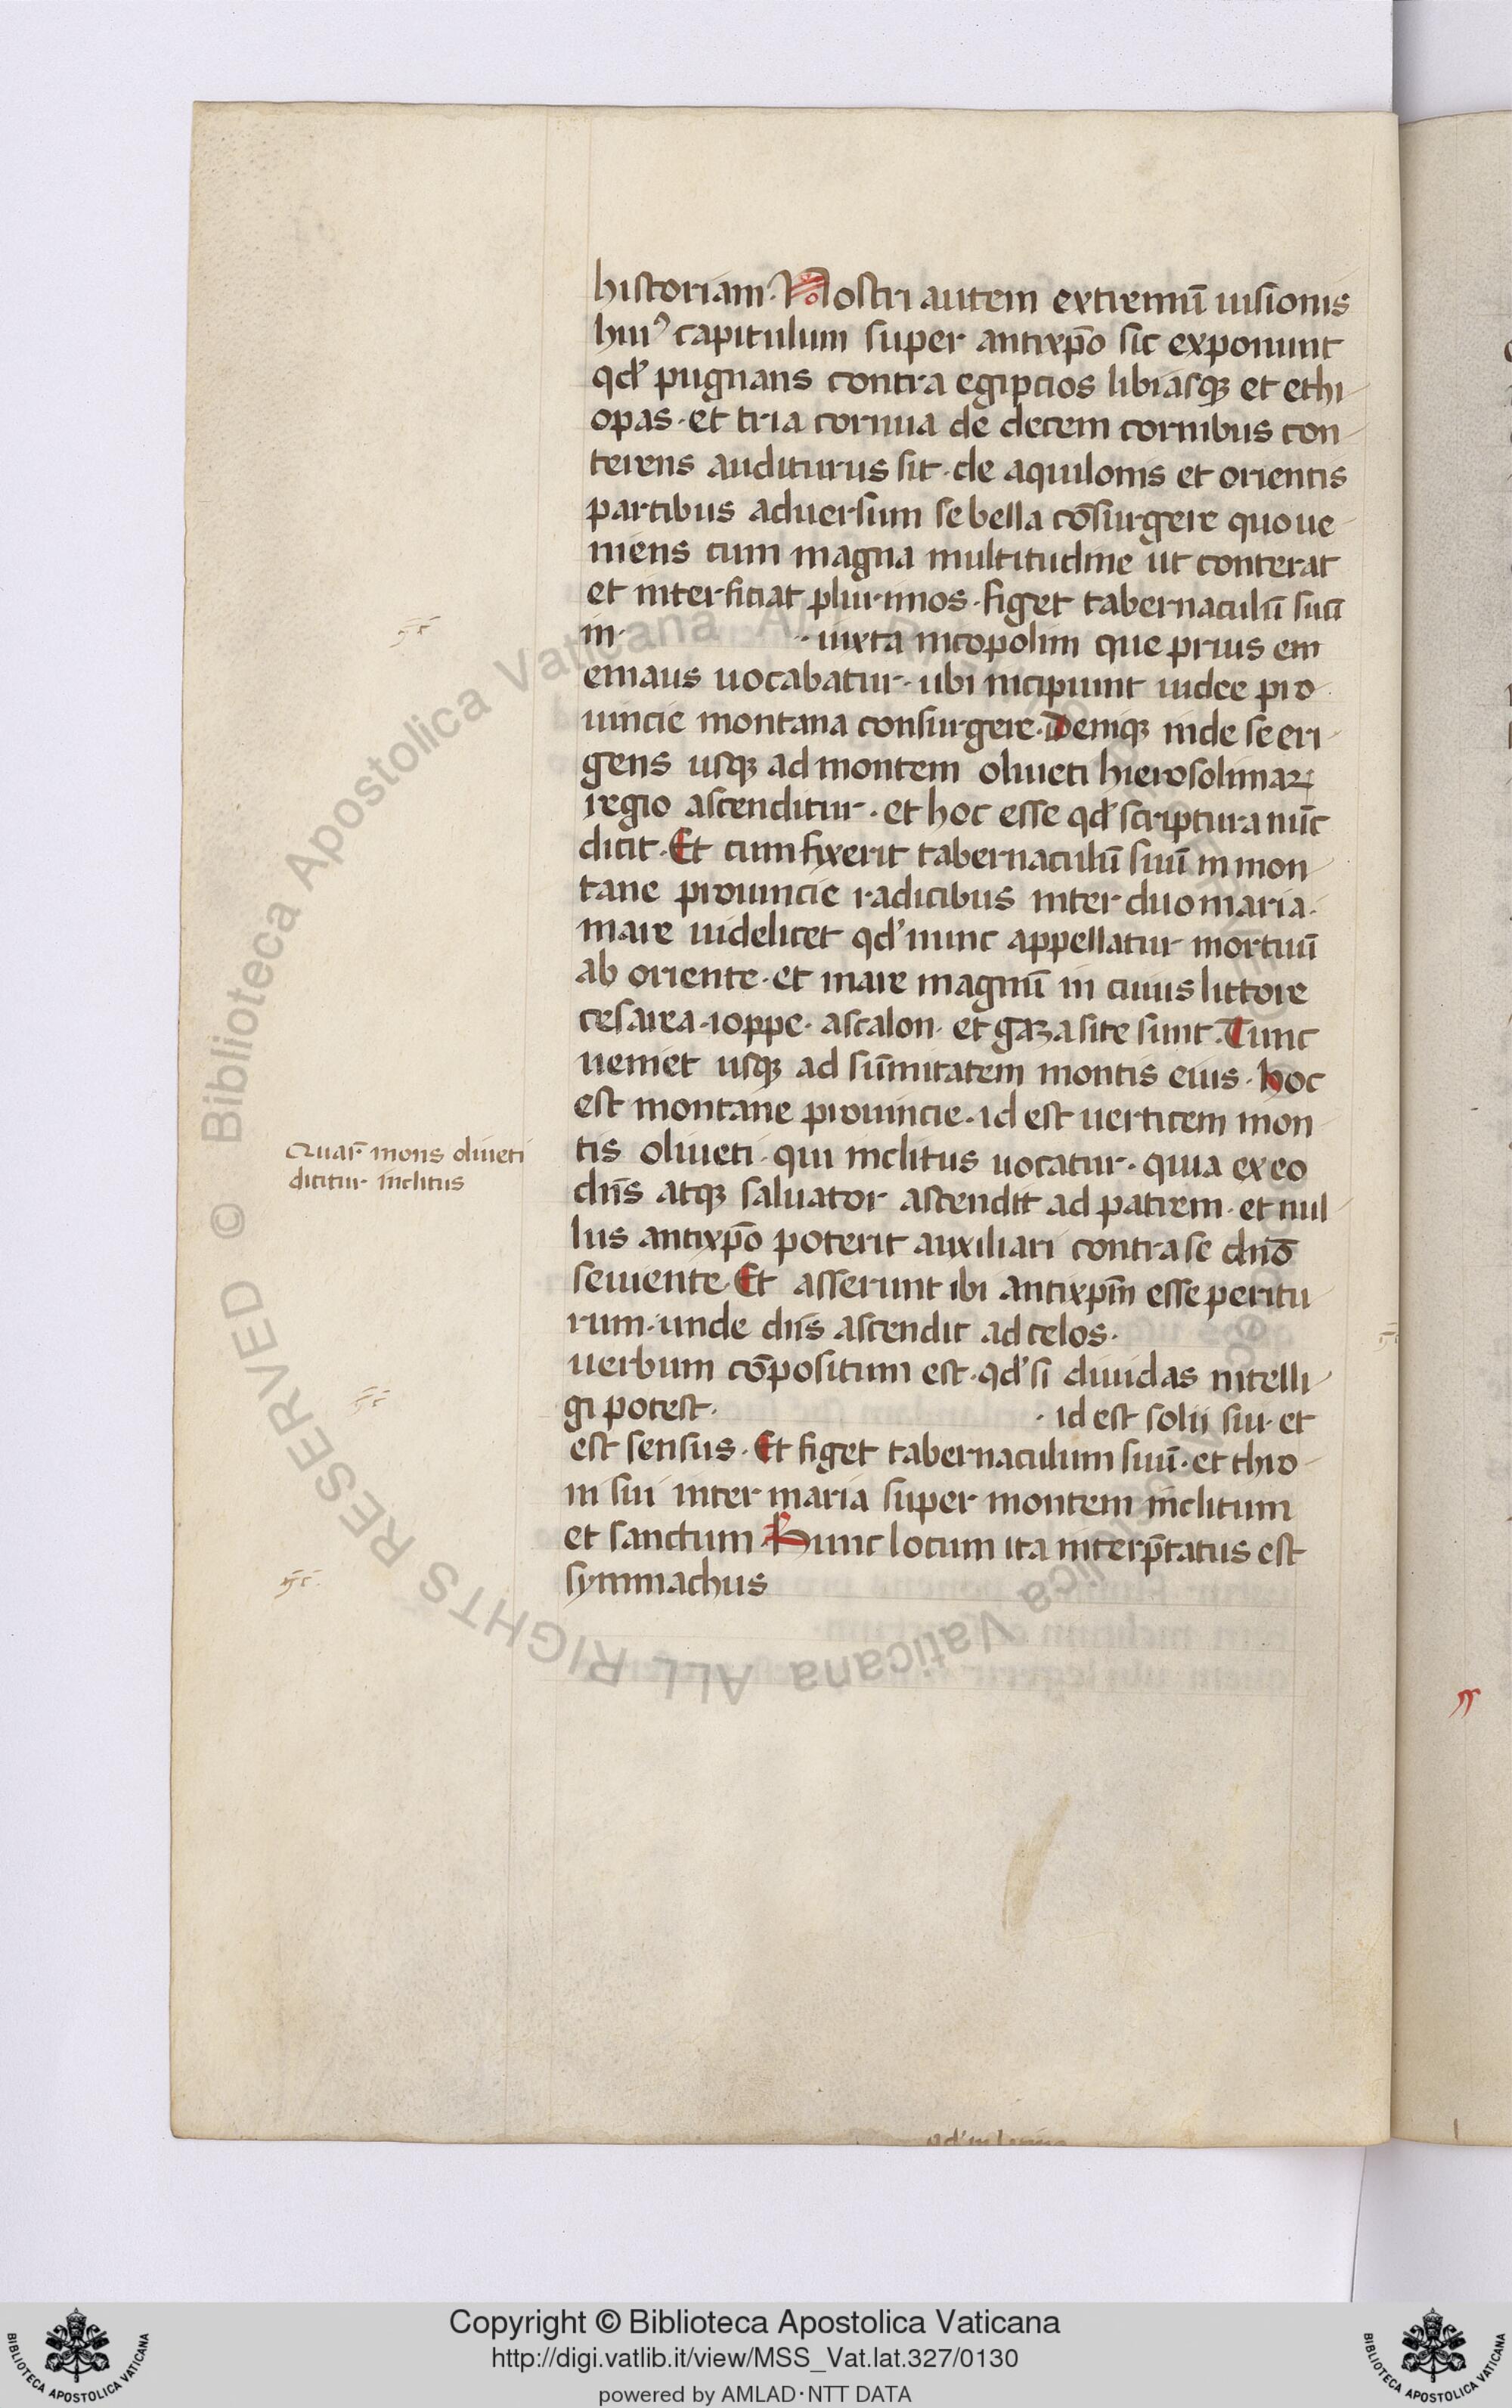 historiam. Nostri autem extremū uisionis
huiꝰ capitulum super antixp̄o sic exponunt
qd̓ pugnans contra egiptios libiasqꝫ et ethi-
opas. et tria cornua de decem cornibus con-
terens auditurus sit. de aquilonis et orientis
partibus aduersum se bella cōsurgere quo ue-
niens cum magna multitudine ut conterat
et interficiat plurimos. figet tabernaculū suū
in. . iuxta nicopolim que prius em
emaus uocabatur. ubi incipiunt iudee pro-
uincie montana consurgere. Deniqꝫ inde se eri-
gens usqꝫ ad montem oliueti hierosolimaꝝ
regio ascenditur. et hoc esse qd̓ scriptura nūc
dicit. Et cum fixerit tabernaculū suū in mon-
tane prouincie radicibus inter duo maria.
mare uidelicet qd̓ nunc appellatur mortuū
ab oriente. et mare magnū in cuius littore
cesarea. ioppe. ascalon. et gaza site sunt. Tunc
ueniet usqꝫ ad sūmitatem montis eius. hoc
est montane prouincie. id est uerticem mon-
tis oliueti. qui inclitus uocatur. quia ex eo
dn̄s atqꝫ saluator ascendit ad patrem. et nul-
lus antixp̄o poterit auxiliari contra se dn̄o
seuiente. Et asserunt ibi antixp̄m esse peritu-
rum. unde dn̄s ascendit ad celos.
uerbum cōpositum est. qd̓ si diuidas intelli-
gi potest. . id est solii sui. et
est sensus. Et figet tabernaculum suū. et thro-
ni sui inter maria super montem inclitum
et sanctum. Hunc locum ita interp̄tatus est
symmachus
Quar̄ mons oliueti
dicitur inclitus
Copyright © Biblioteca Apostolica Vaticana
http://digi.vatlib.it/view/MSS_Vat.lat.327/0130
powered by AMLAD·NTT DATA
BIBLIOTECA APOSTOLICA VATICANA
BIBLIOTECA APOSTOLICA VATICANA
© Biblioteca Apostolica Vaticana ALL RIGHTS RESERVED